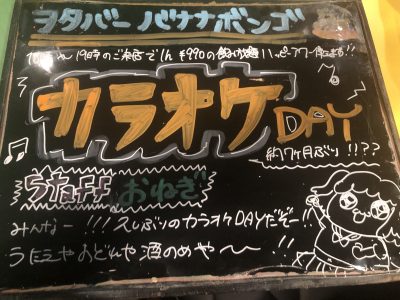 ヲタバー バナナボンゴ
19時のご来店で1h ¥990の飲み放題ハッピーアワー作動!!
カラオケ DAY
約17ヶ月ぶり!!??
うたff おねぎ
みんなー!!! 久しぶりのカラオケDAYだぞー!!
うたえやおどれや酒のめや〜